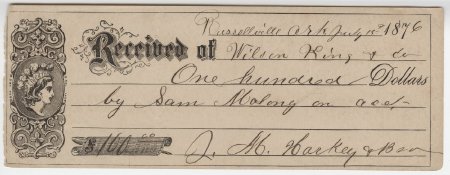 Russellville Ark July 10 1876
Received of Wilson King & Co
One hundred Dollars
by Sam Malong on acct
$100.00 J. M. Harkey & Bro